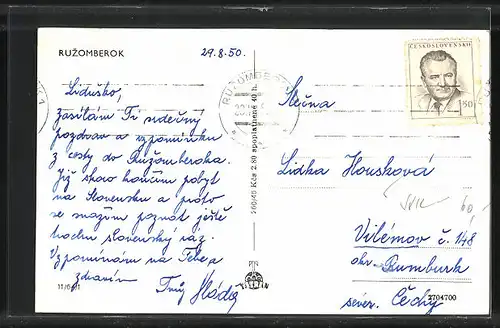 RUŽOMBEROK
29.8.50.
ČESKOSLOVENSKO
1.50
RUŽOMBEROK
Liduško,
zasílám Ti srdečný
pozdrav a vzpomínku
z cesty do Ružomberoka.
Již skoro končím pobyt
na Slovensku a proto
se snažím poznat ještě
trochu slovenský ráz.
Vzpomínám na Tebe a
zdravím
Tvůj
Slečna
Lidka Housková
Vilémov č. 148
okr. Rumburk
sever. Čechy
60,-
Kčs 2.80 spoplatnené 40 h.
2704700